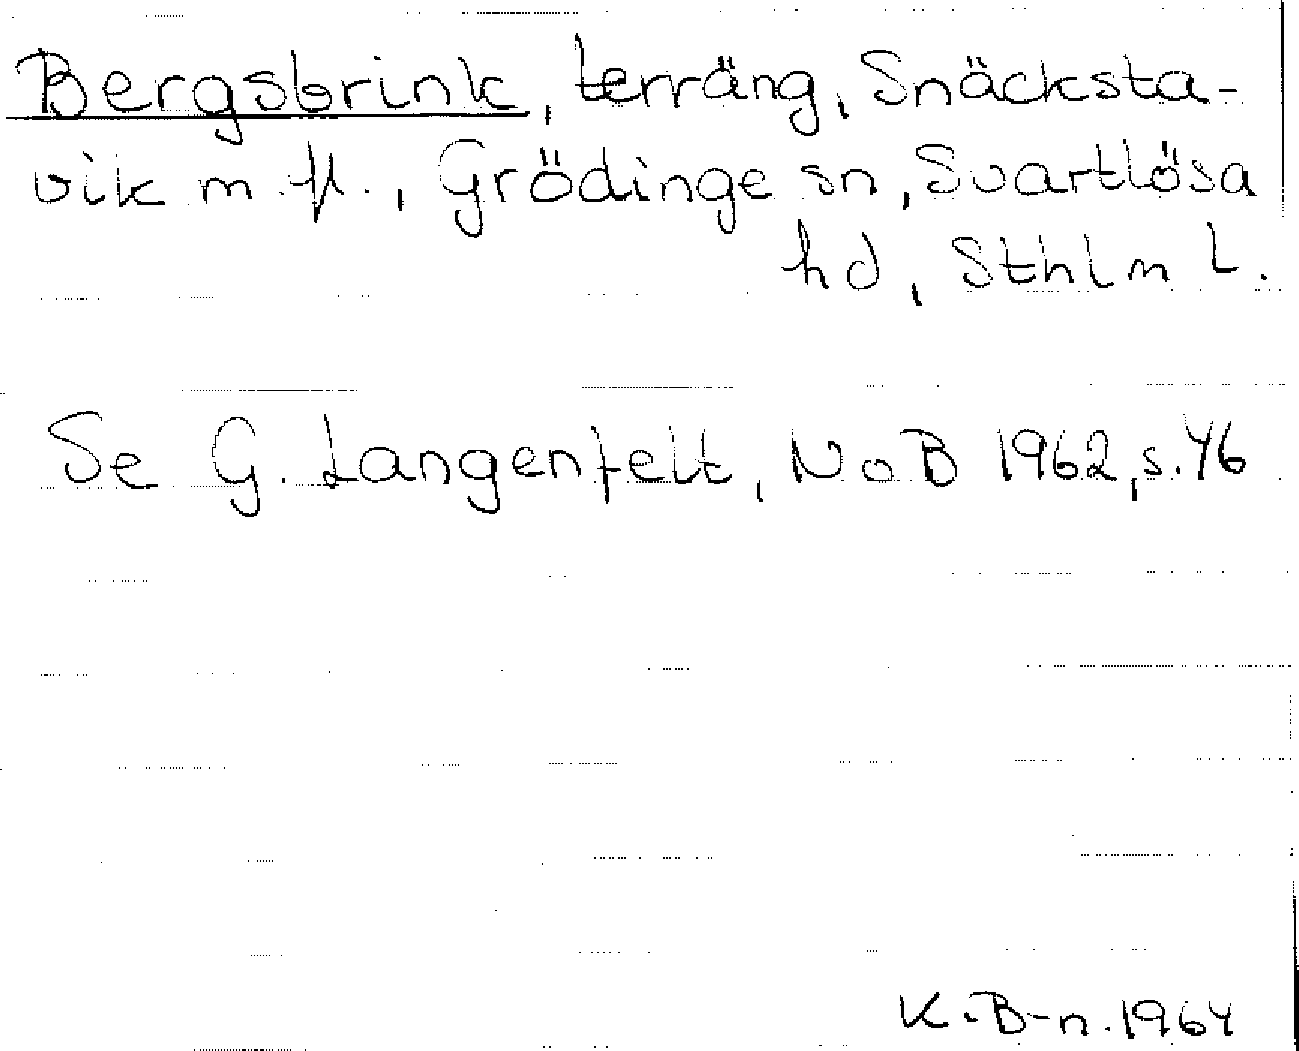 Bergsbrink, terräng, Snäcksta-
vik m. fl., Grödinge sn, Svartlösa
hd, Sthlm L.
Se G. Langenfelt, NoB 1962, s. 46
K. B-n. 1964